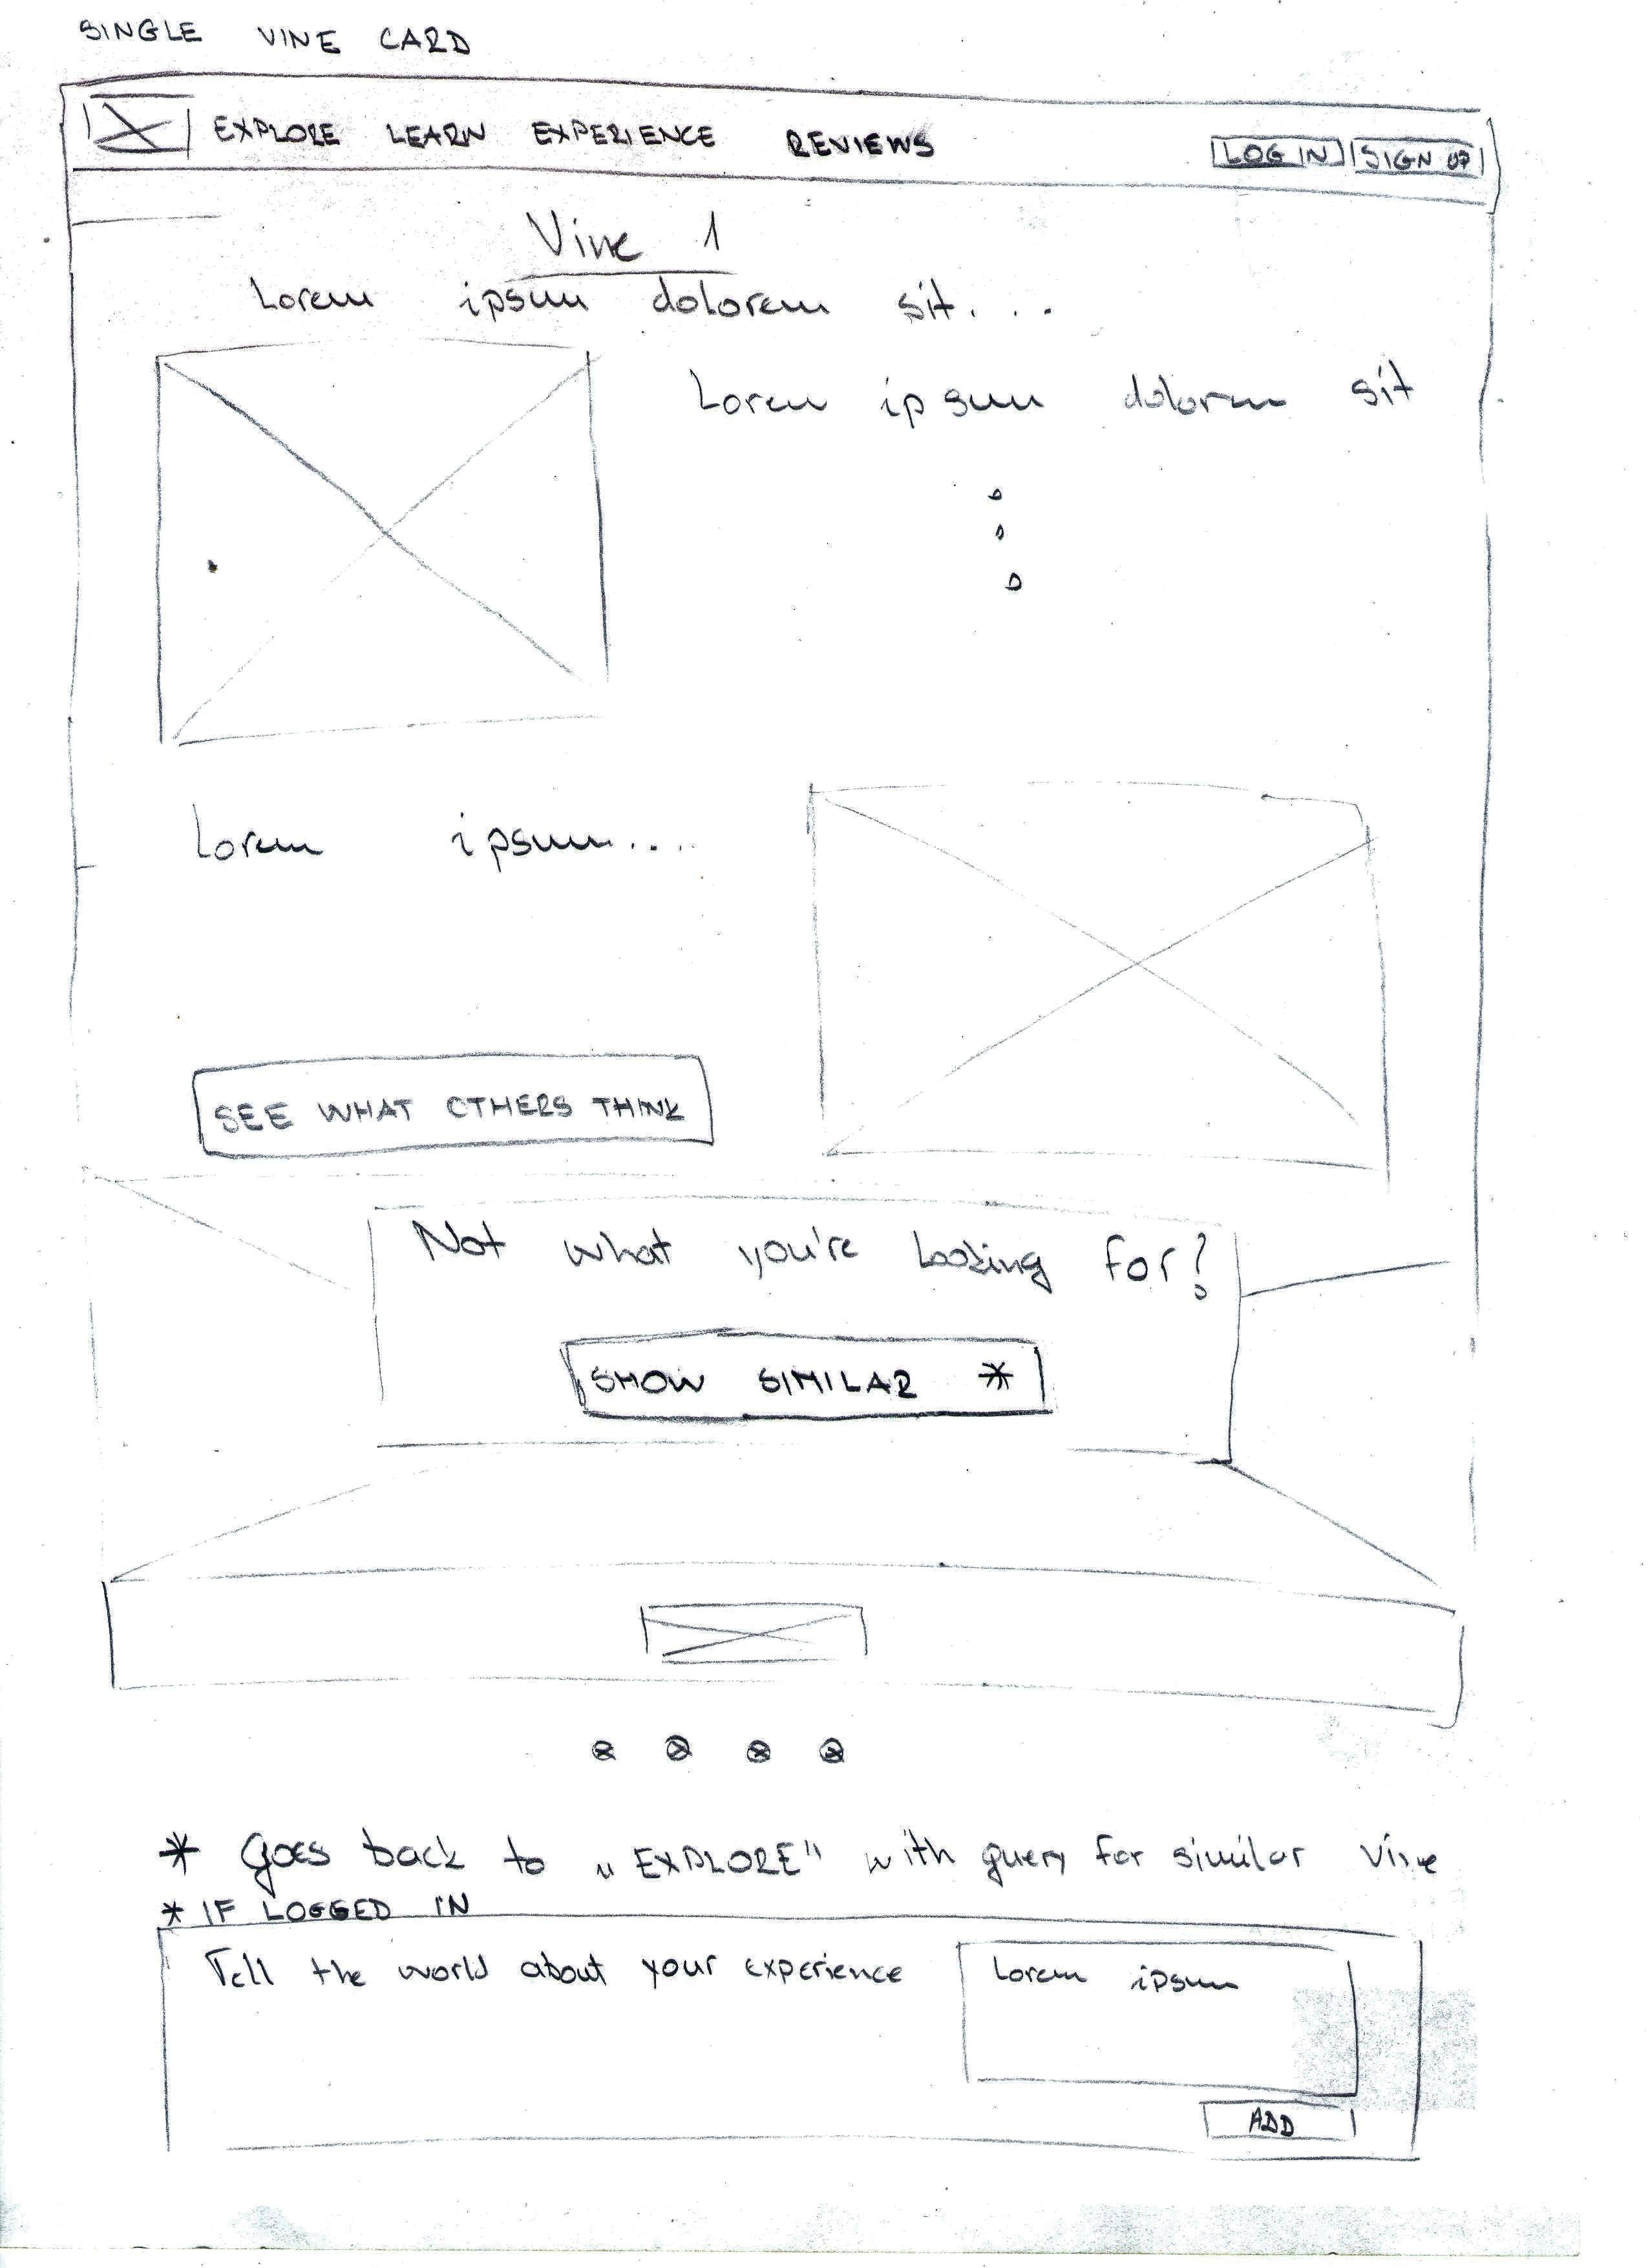 SINGLE VINE CARD
EXPLORE LEARN EXPERIENCE REVIEWS LOG IN SIGN UP
Vine 1
Lorem ipsum dolorem sit...
Lorem ipsum dolorem sit
Lorem ipsum....
SEE WHAT OTHERS THINK
Not what you're looking for?
SHOW SIMILAR *
* Goes back to „EXPLORE" with query for similar vine
* IF LOGGED IN
Tell the world about your experience
Lorem ipsum
ADD